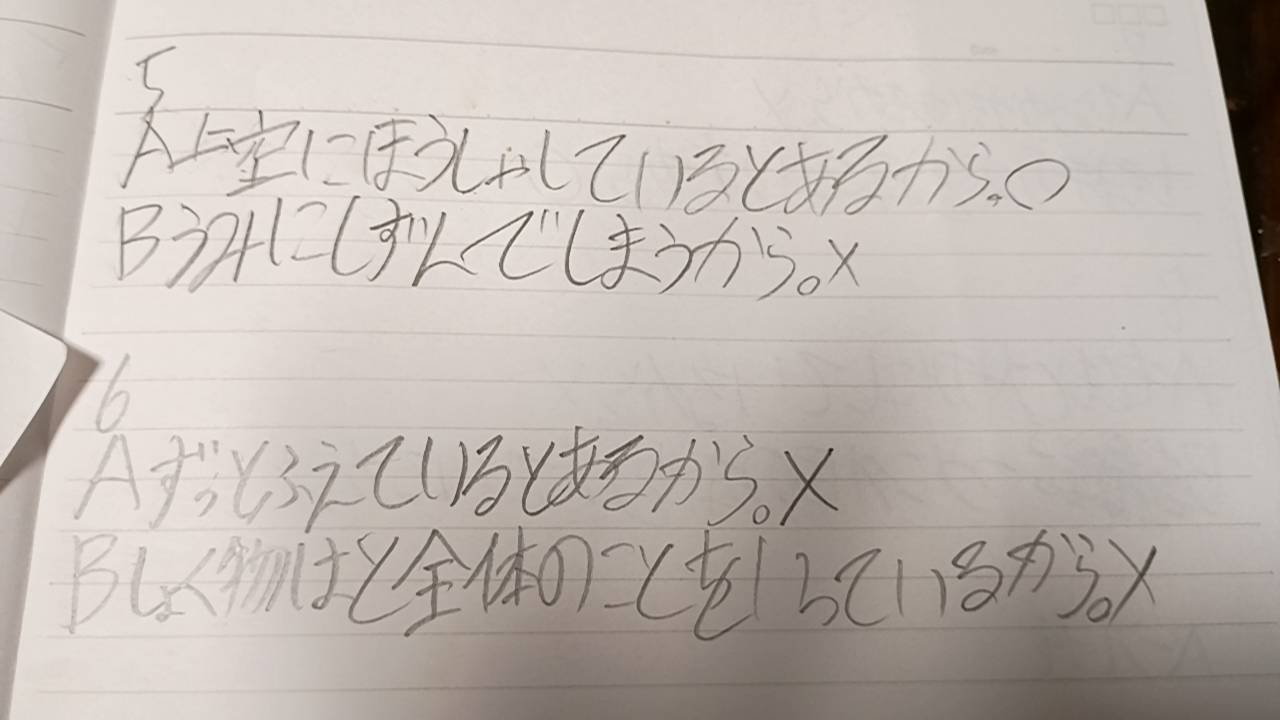 5
A上空にほうしゃしているとあるから。○
Bうみにしずんでしまうから。×
6
Aずっとふえているとあるから。×
Bしょく物はと全体のことをしらているから。×